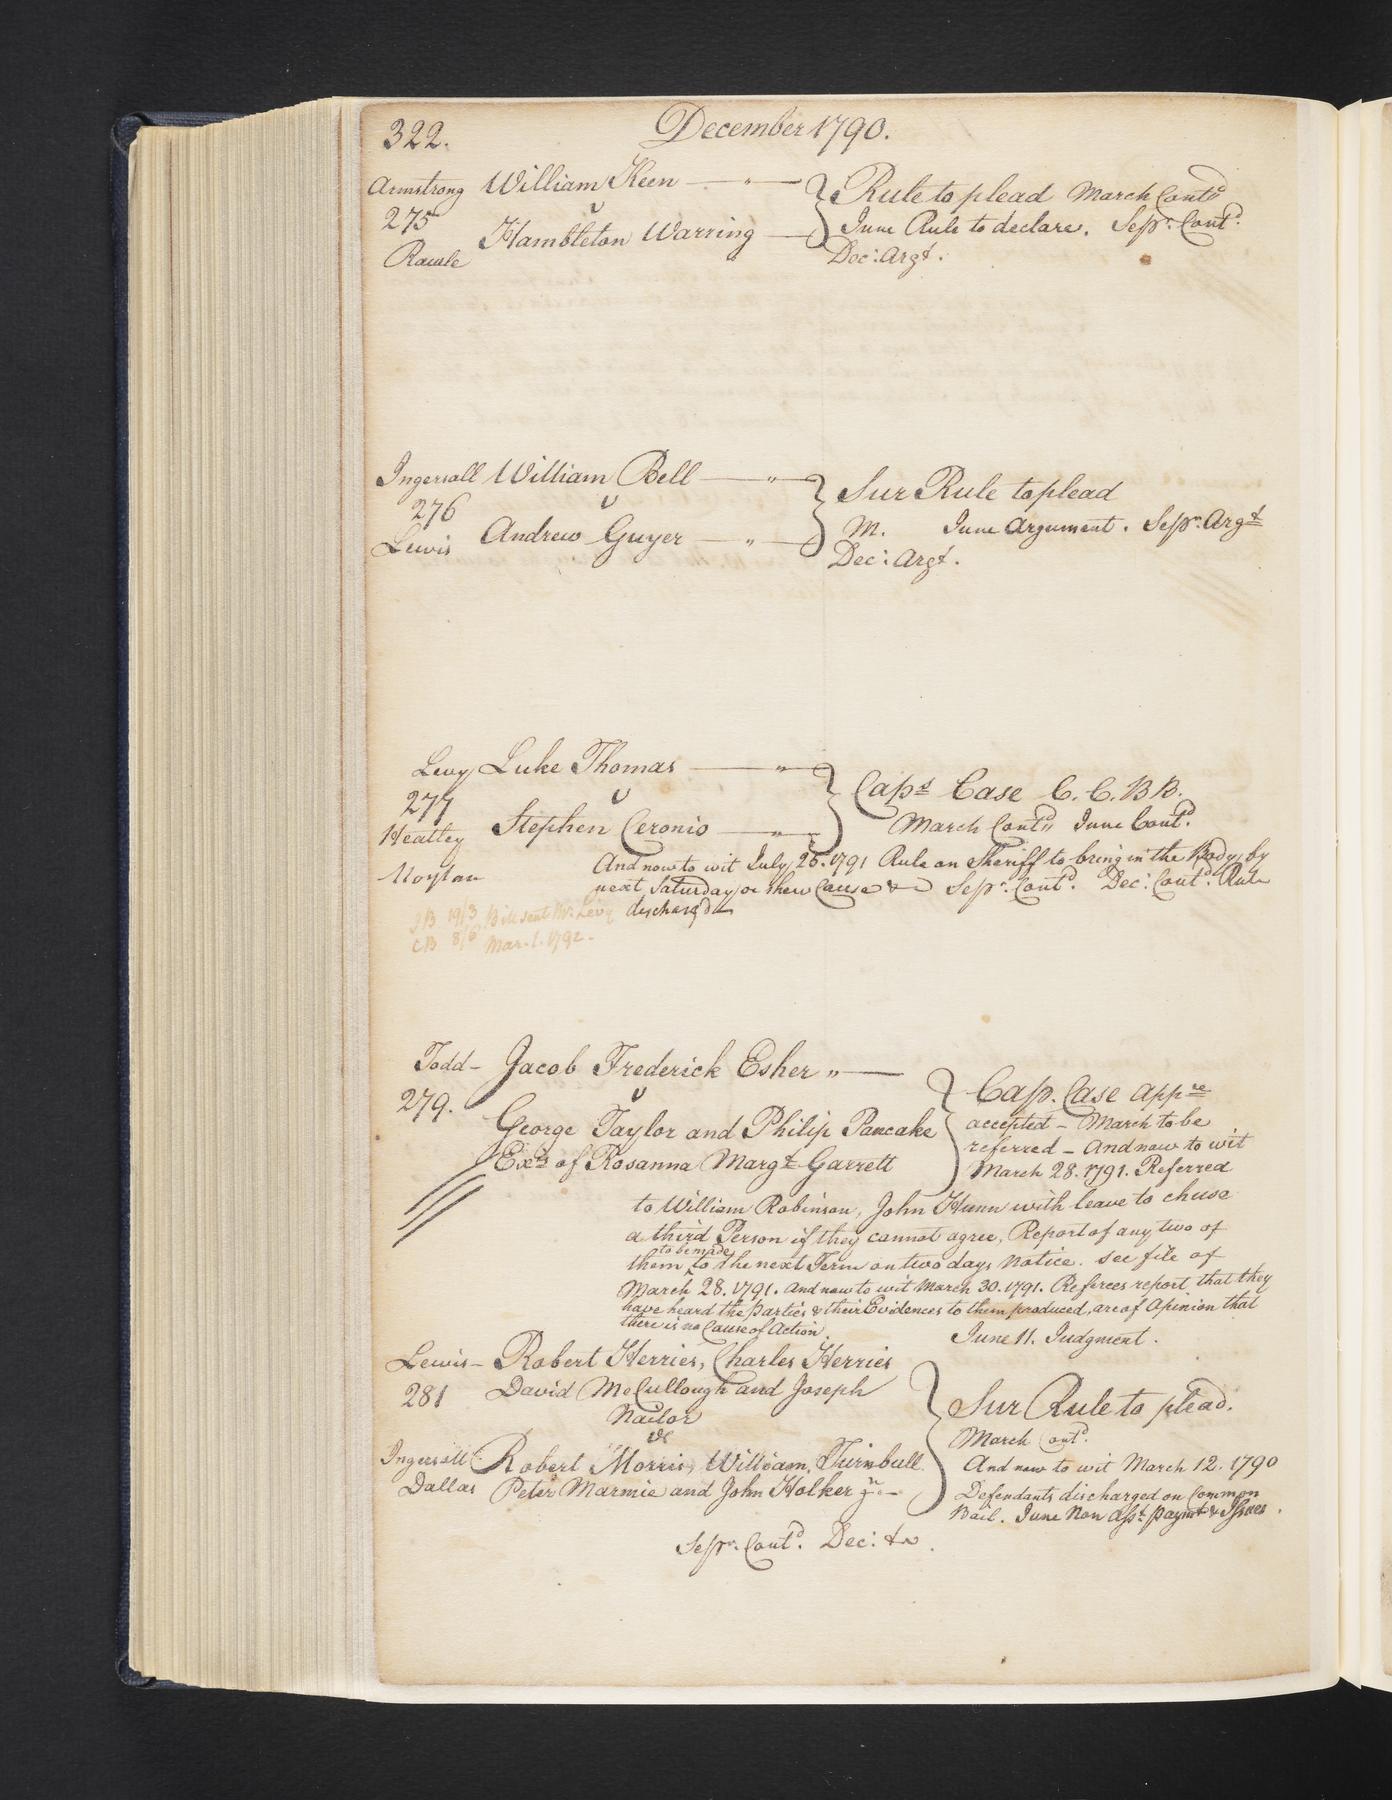 322.
December 1790.
Armstrong William Keen — " — Rule to plead March Contd
275 v June Rule to declare. Sepr. Contd.
Rawle Hambleton Warring — Dec: Argt.
Ingersoll William Bell — " — Sur Rule to plead
276 v M. June Argument. Sepr. Argt
Lewis Andrew Guyer — " — Dec: Argt.
Levy Luke Thomas — " — Caps Case C. C. B B.
277 v March Contd June Contd.
Heatley Stephen Ceronio — " —
Moylan And now to wit July 25. 1791 Rule on Sheriff to bring in the Body by
next Saturday or shew Cause & Sepr. Contd. Dec: Contd. Rule
discharg'd
JB 19/3 Bill sent Mr. Levy
CB 8/6 Mar. 1. 1792.
Todd — Jacob Frederick Esher " — Cap. Case appce
279. v accepted — March to be
George Taylor and Philip Pancake referred — And now to wit
Exrs of Rosanna Margt Garrett March 28. 1791. Referred
to William Robinson, John Hunn with leave to chuse
a third Person if they cannot agree, Report of any two of
to be made
them ^ to the next Term on two days notice. see file of
March 28. 1791. And now to wit March 30. 1791. Referees report that they
have heard the parties & their Evidences to them produced, are of Opinion that
there is no Cause of Action.
June 11. Judgment.
Lewis — Robert Herries, Charles Herries
281 David McCullough and Joseph Sur Rule to plead.
Nailor March Contd.
vs
Ingersoll Robert Morris, William Turnbull And now to wit March 12. 1790
Dallas Peter Marmie and John Holker Defendants discharged on Common
Bail. June Non Asst. paymt & Issues.
Sepr. Contd. Dec: